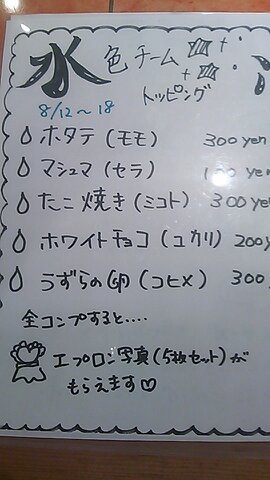 水色チーム
トッピング
8/12～18
ホタテ（モモ） 300yen
マシュマ（セラ） 100yen
たこ焼き（ミコト） 300ye
ホワイトチョコ（ユカリ） 200y
うずらの卵（コヒメ） 300
全コンプすると....
エプロン写真（5枚セット）が
もらえます♡